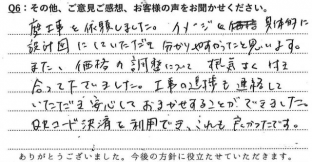 Q6：その他、ご意見ご感想、お客様の声をお聞かせください。
庭工事を依頼しました。イメージを具体的に
設計図にしていただき分かりやすかったと思います。
また、価格の調整について根気よく付き
合って下さいました。工事の進捗も連絡して
いただき安心しておまかせすることができました。
QRコード決済を利用でき、これも良かったです。
ありがとうございました。今後の方針に役立たせていただきます。